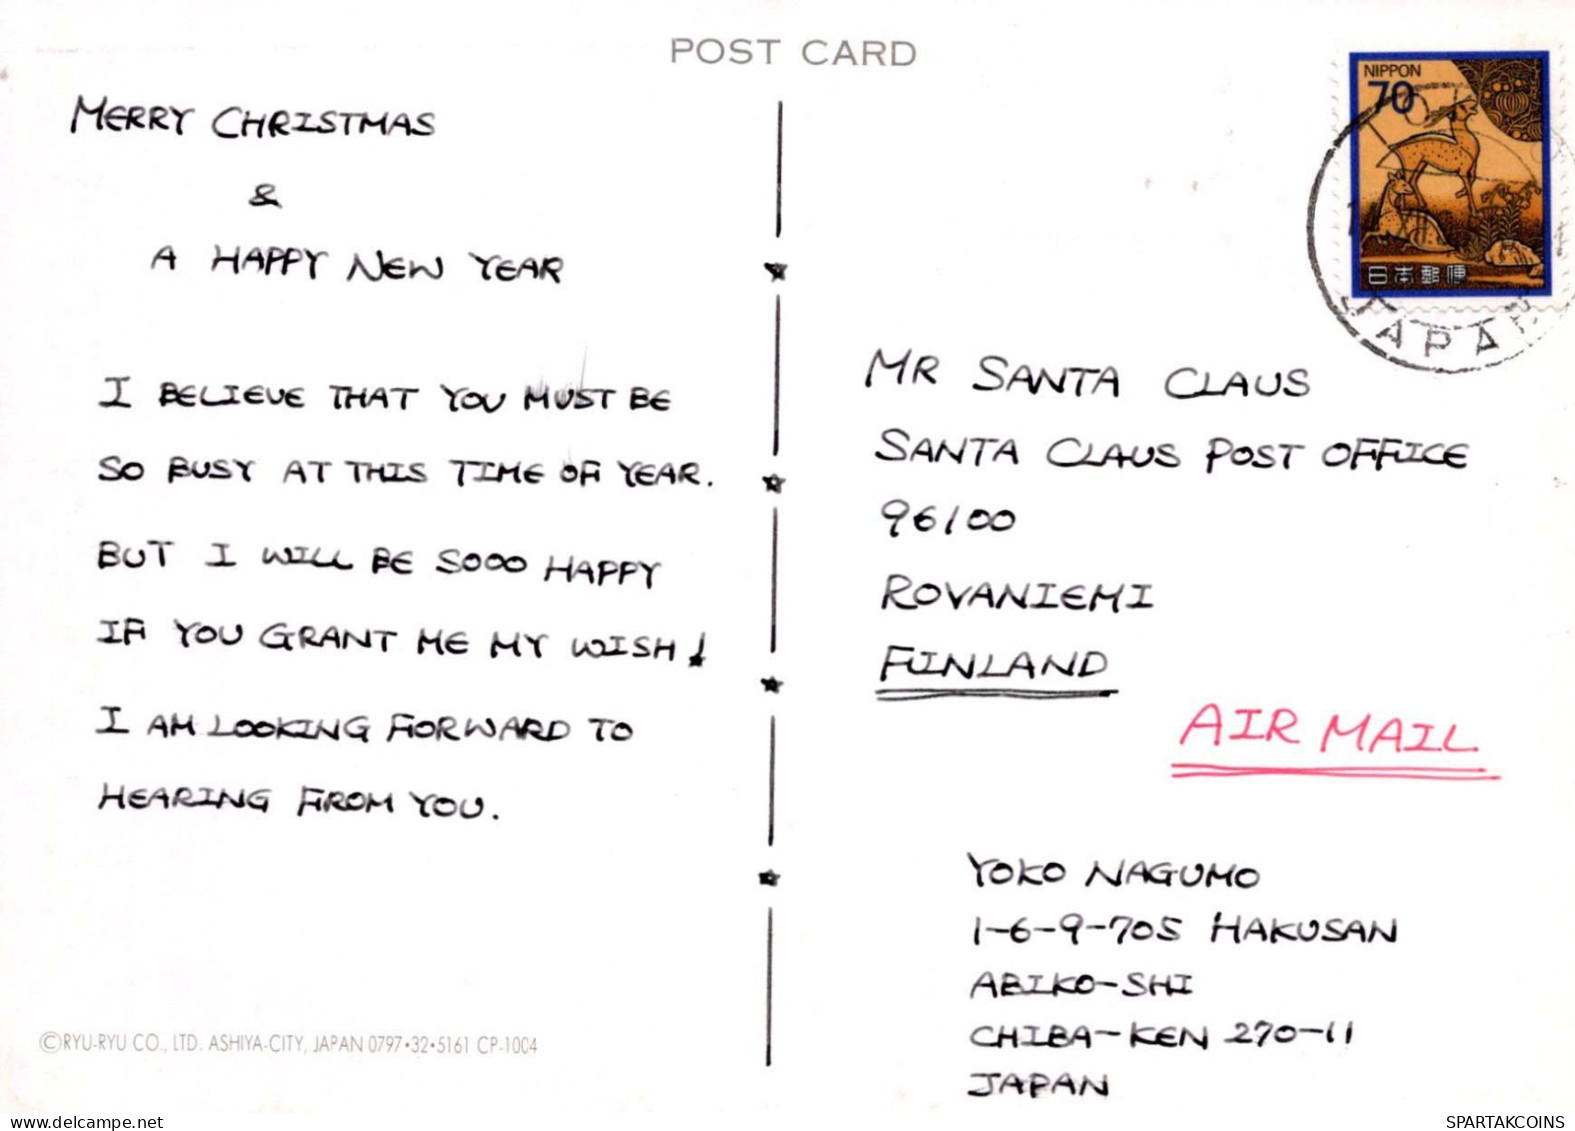 POST CARD
NIPPON
70
日本郵便
JAPAN
MERRY CHRISTMAS
&
A HAPPY NEW YEAR
I BELIEVE THAT YOU MUST BE
SO BUSY AT THIS TIME OF YEAR.
BUT I WILL BE SOOO HAPPY
IF YOU GRANT ME MY WISH!
I AM LOOKING FORWARD TO
HEARING FROM YOU.
©RYU-RYU CO., LTD. ASHIYA-CITY, JAPAN 0797•32•5161 CP-1004
MR SANTA CLAUS
SANTA CLAUS POST OFFICE
96100
ROVANIEMI
FINLAND
AIR MAIL
YOKO NAGUMO
1-6-9-705 HAKUSAN
ABIKO-SHI
CHIBA-KEN 270-11
JAPAN
delcampe.net
SPARTAKCOINS